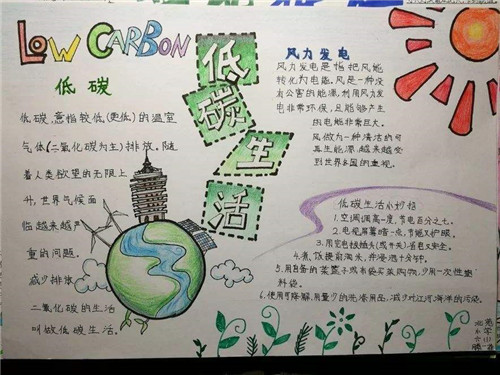 LOW CARBON
低碳
低碳,意指较低(更低)的温室
气体(二氧化碳为主)排放。随
着人类欲望的无限上
升,世界气候面
临越来越严
重的问题。
减少排放
二氧化碳的生活
叫做低碳生活。
低碳生活
风力发电
风力发电是指把风能
转化为电能。风是一种没
有公害的能源,利用风力发
电非常环保,且能够产生
的电能非常巨大。
风做为一种清洁的可
再生能源,越来越受
到世界各国的重视。
低碳生活小妙招
1.空调调高一度,节电百分之七。
2.电视屏幕暗一点,节能又护眼。
3.用完电拔插头(或关),省电又安全。
4.煮饭提前淘米,并浸泡十分钟。
5.用自备的菜篮子或布袋买菜购物,少用一次性塑
料袋。
6.使用可降解,用量少的洗涤用品,减少对江河海洋的污染。